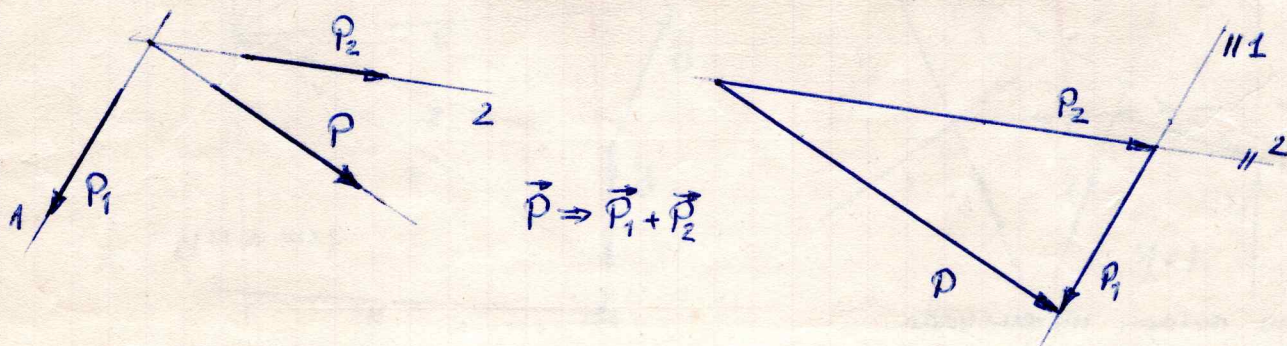 P₂
2
P
P₁
1
P⃗ ⇒ P⃗₁ + P⃗₂
∥ 1
P₂
∥ 2
P
P₁